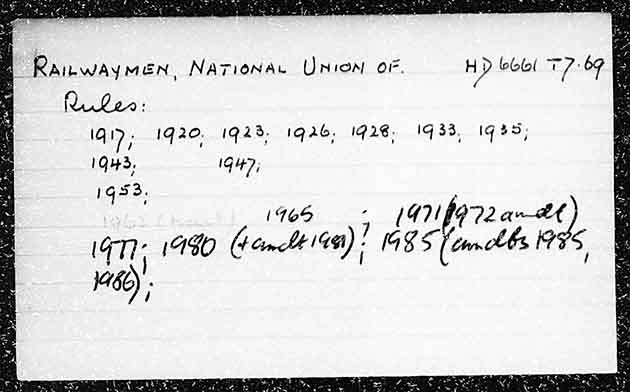 RAILWAYMEN, NATIONAL UNION OF. HD 6661 T7.69
Rules:
1917; 1920; 1923; 1926; 1928; 1933; 1935;
1943; 1947;
1953;
1965 ; 1971 (1972 amdt)
1977; 1980 (+ amdt 1981); 1985 (amdts 1985,
1986);